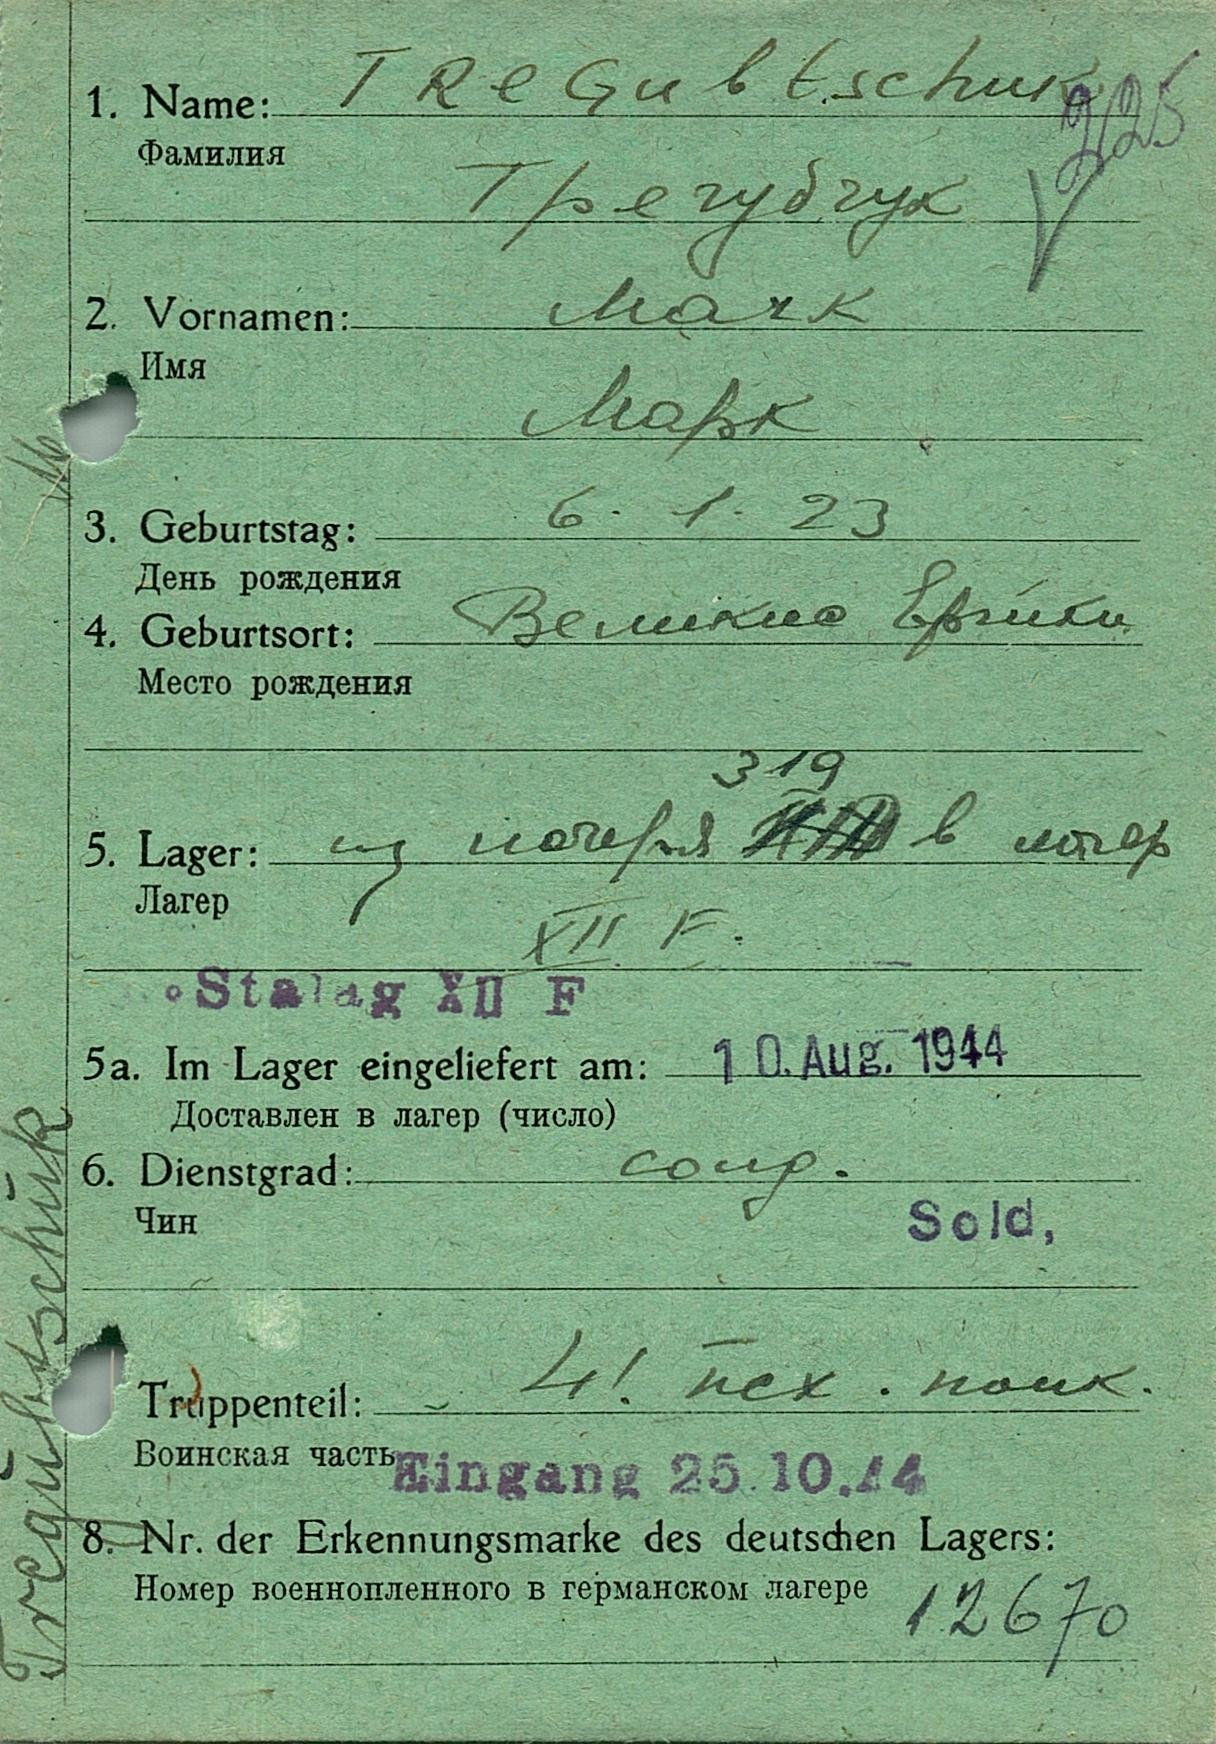 1. Name: TReGubtschuk
225
Фамилия
Трегубчук
2. Vornamen: Магк
Имя
Марк
3. Geburtstag: 6. 1. 23
День рождения
4. Geburtsort: Великие
Место рождения
319
5. Lager: из лагеря в лагер
Лагер
XII F.
Stalag XII F
5a. Im Lager eingeliefert am: 10. Aug. 1944
Доставлен в лагер (число)
6. Dienstgrad: солд.
Чин
Sold,
Truppenteil: 41. пех. полк.
Воинская часть
Eingang 25.10.44
8. Nr. der Erkennungsmarke des deutschen Lagers:
Номер военнопленного в германском лагере
12670
Tregubtschuk